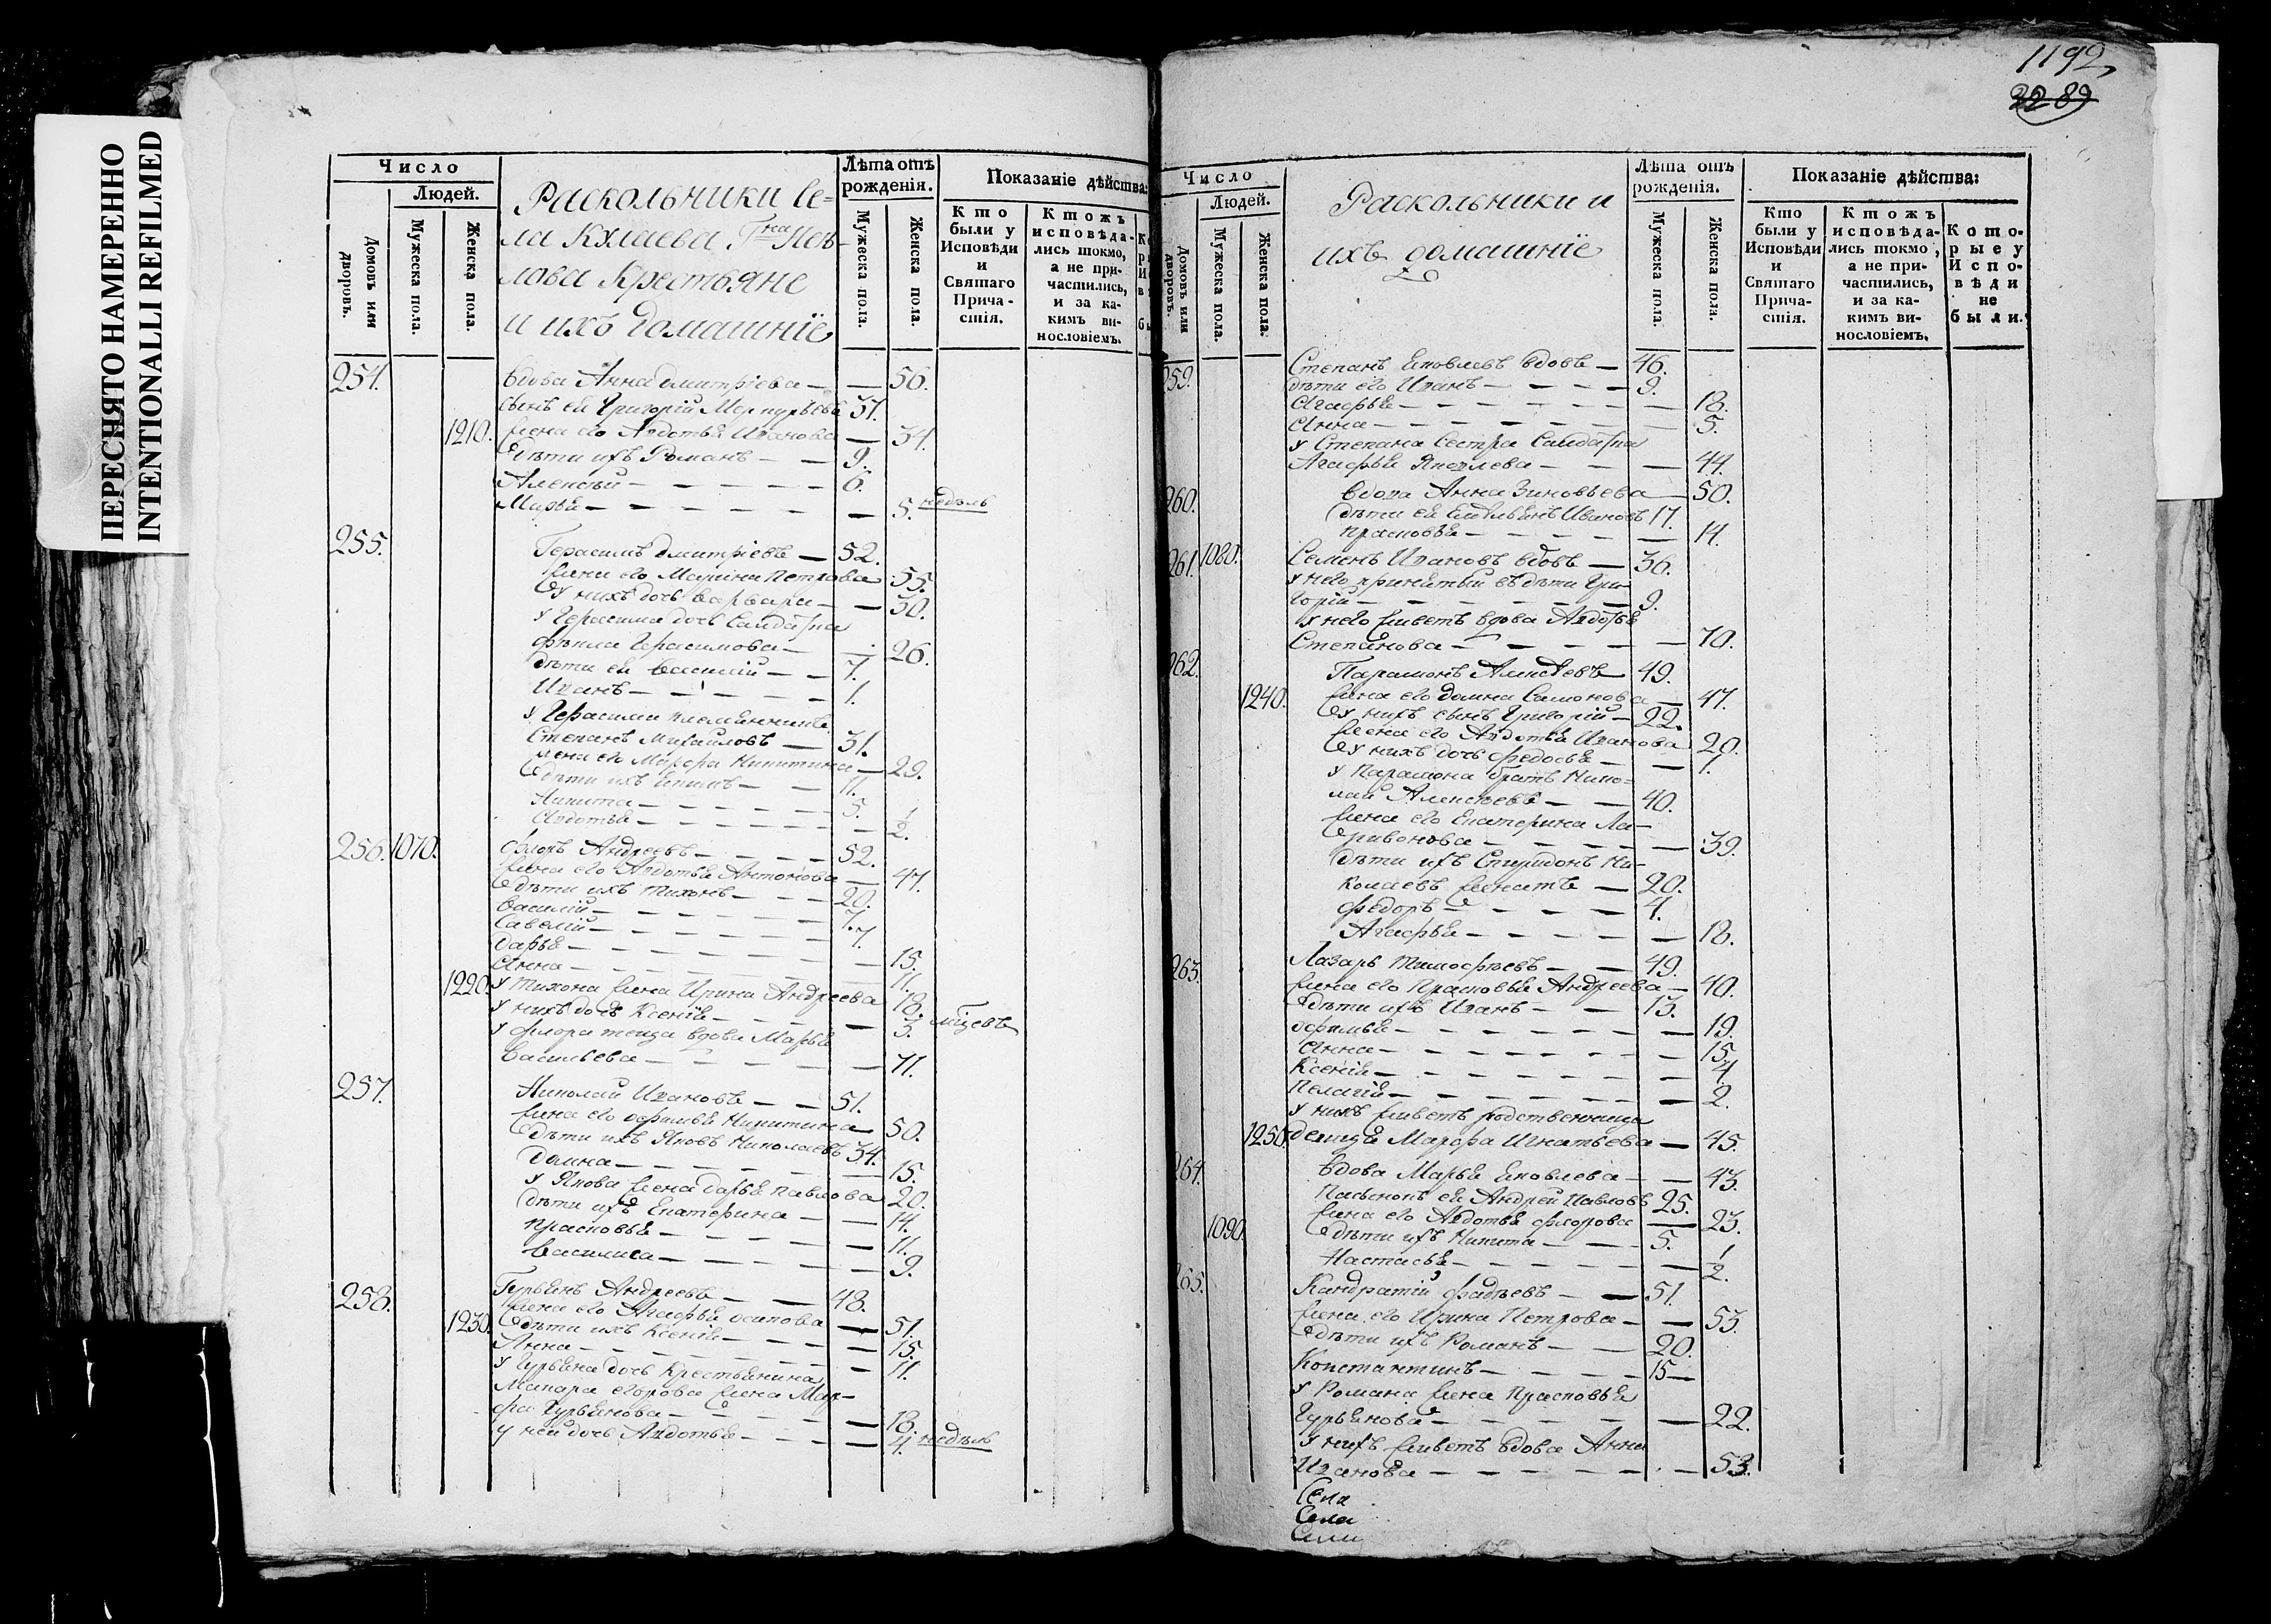 ПЕРЕСНЯТО НАМЕРЕННО
INTENTIONALLI REFILMED
Число
Людей.
Домовъ или дворовъ.
Мужеска пола.
Женска пола.
Раскольники Се=
ла Кулаева Гна
Крестьяне
и ихъ домашнїе
Лѣта отъ рожденія.
Мужеска пола.
Женска пола.
Показаніе дѣйства:
Кто были у Исповѣди и Святаго Прича-стія.
Ктожъ исповѣда-лись токмо, а не при-частились, и за ка-кимъ ви-нословіемъ.
254. вдова Анна Дмитріева — — 56.
сынъ ея Григорій Меркурьевъ 37.
1210. жена его Авдотья Иванова — 34.
дѣти ихъ Романъ — — 9.
Алексѣй — 6.
Марья — — 5. недѣль
255. Герасимъ Дмитріевъ — 52.
жена его Марина Петрова 55.
у нихъ дочь Варвара — — 30.
у Герасима дочь Салдатка
Фекла Герасимова — 26.
дѣти ея Василій — — 7.
Иванъ — 1.
у Герасима племянникъ
Степанъ Михайловъ — 31.
жена его Марфа Никитина — 29.
дѣти ихъ Екимъ — — 11.
Никита — 5.
Авдотья — — 1/2.
256. 1070. Флоръ Андреевъ — 52.
жена его Авдотья Антонова — 47.
дѣти ихъ Тихонъ — 20.
Василій — 7.
Савелій — 7.
Дарья — — 15.
Анна — — 11.
1220. у Тихона жена Ирина Андреева 18.
у нихъ дочь Ксенія — — 3. мѣсецъ
у Флора теща вдова Марья
Васильева — — 71.
257. Николай Ивановъ — — 51.
жена его Офимья Никитина — 50.
дѣти ихъ Яковъ Николаевъ 34.
Домна — — 15.
у Якова жена Дарья Павлова 20.
дѣти ихъ Екатерина — — 14.
Прасковья — — 11.
Василиса — — 9.
258. Гурьянъ Андреевъ — — 48.
жена его Агафья Осипова — 51.
1230. дѣти ихъ Ксенія — — 15.
Анна — — 11.
у Гурьяна дочь Крестьянина
Макара Егорова жена Мар-
фа Гурьянова — — 18.
у ней дочь Авдотья — — 4. недѣль
1192
32 89
Число
Людей.
Домовъ или дворовъ.
Мужеска пола.
Женска пола.
Раскольники и
ихъ домашнїе
Лѣта отъ рожденія.
Мужеска пола.
Женска пола.
Показаніе дѣйства:
Кто были у Исповѣди и Святаго Прича-стія.
Ктожъ исповѣда-лись токмо, а не при-частились, и за ка-кимъ ви-нословіемъ.
Кото-рые у Испо-вѣди не были.
259. Степанъ Яковлевъ вдовъ — 46.
дѣти его Иванъ — 9.
Агафья — — 18.
Анна — — 5.
у Степана сестра Салдатка
Агафья Яковлева — — 44.
260. вдова Анна Зиновьева — 50.
дѣти ея Емельянъ Ивановъ 17.
Прасковья — — 14.
261. 1080. Семенъ Ивановъ вдовъ — 36.
у него принятый въ дѣти Гри-
горій — 9.
у него живетъ вдова Авдотья
Степанова — — 70.
262. Парамонъ Алексѣевъ — 49.
1240. жена его Домна Самонова — 47.
у нихъ сынъ Григорій — 22.
жена его Авдотья Иванова 20.
у нихъ дочь Федосья — — 1.
у Парамона братъ Нико=
лай Алексѣевъ — — 40.
жена его Екатерина Ла-
ривонова — — 39.
дѣти ихъ Спиридонъ Ни-
колаевъ женатъ — 20.
Федоръ — 4.
Агафья — — 18.
263. Лазарь Тимофѣевъ — — 49.
жена его Прасковья Андреева — 40.
дѣти ихъ Иванъ — — 13.
Офимья — — 19.
Анна — — 15.
Ксенія — — 4.
Пелагія — — 2.
у нихъ живетъ родственница
1250. девица Марфа Игнатьева — 45.
264. вдова Марья Яковлева — — 43.
пасынокъ ея Андрей Павловъ 25.
жена его Авдотья Флорова — 23.
1090. дѣти ихъ Никита — 5.
Настасья — — 1/2.
265. Кандратій Фадѣевъ — 51.
жена его Ирина Петрова — — 53.
дѣти ихъ Романъ — — 20.
Константинъ — 15 —
у Романа жена Прасковья
Гурьянова — — 22.
у нихъ живетъ вдова Анна
Иванова — — 53.
Села
Села